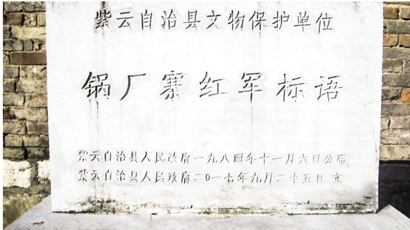 紫云自治县文物保护单位
锅厂寨红军标语
紫云自治县人民政府一九八四年十一月六日公布
紫云自治县人民政府二〇一七年九月二十五日 立